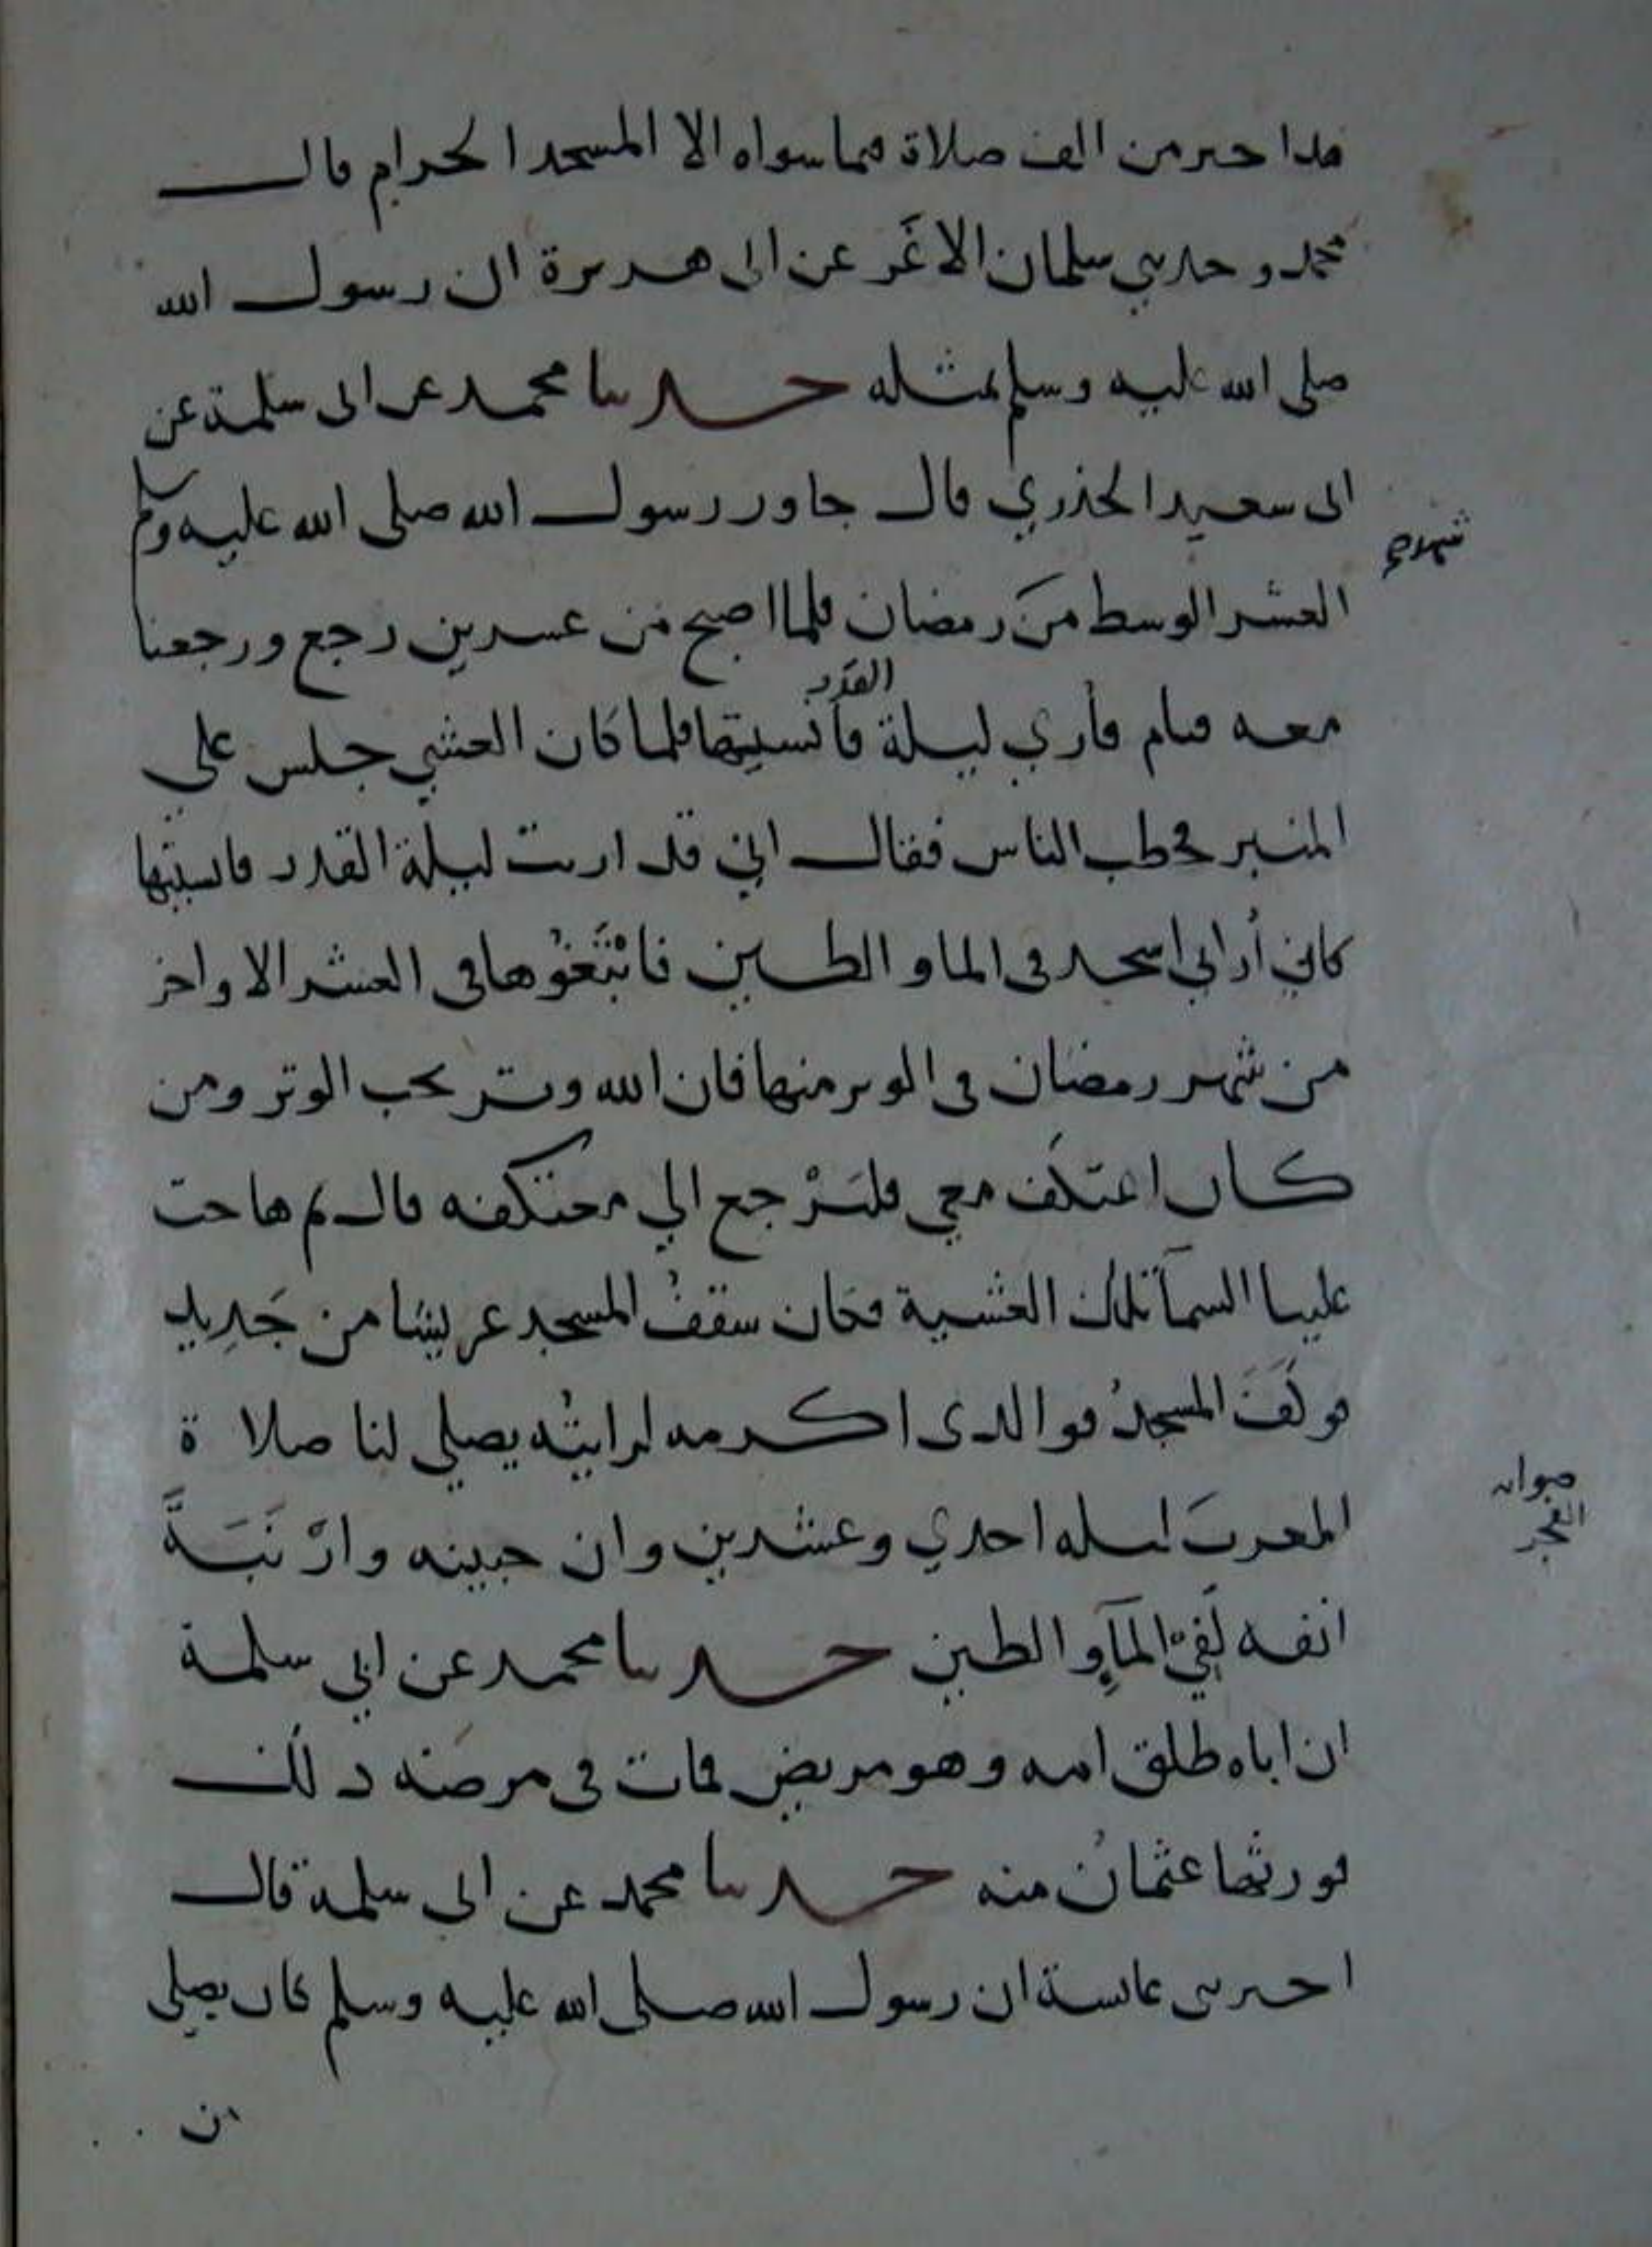 هذا خير من الف صلاة فيما سواه الا المسجد الحرام قال
محمد وحدثني سلمان الاغَر عن ابى هريرة ان رسول الله
صلى الله عليه وسلم بمثله حدثنا محمد عن ابى سلمة عن
ابى سعيد الخذري قال جاور رسول الله صلى الله عليه وسلم
شهر صح
العشر الوسط منَ رمضان فلما اصبح من عشرين رجع ورجعنا
القدر
معه فنام فأري ليلة فأنسيتها فلما كان العشي جلس علي
المنبر فخطب الناس فقال اني قد اريت ليلة القدر فانسيتها
كاني أراني اسجد فى الما والطين فابْتَغوُها فى العشر الاواخر
من شهر رمضان فى الوتر منها فان الله وتر يحب الوتر ومن
كان اعتكف معي فليَرْجع الي معتكفه قال ثم هاجت
علينا السمآ تلك العشية فكان سقفُ المسجد عريشا من جَرِيد
فوكَفَ المسجدُ فوالذى اكرمه لرايتُه يصلي لنا صلاة
صوابه
الفجر
المغربَ ليله احدي وعشرين وان جبينه وارْنَبَةَ
انفه لَفِي المآءِ والطين حدثنا محمد عن ابي سلمة
ان اباه طلق امه وهو مريض فمات فى مرضه ذلك
فورثها عثمانُ منه حدثنا محمد عن ابى سلمة قال
اخبرتنى عايشة ان رسول الله صلى الله عليه وسلم كان يصلى